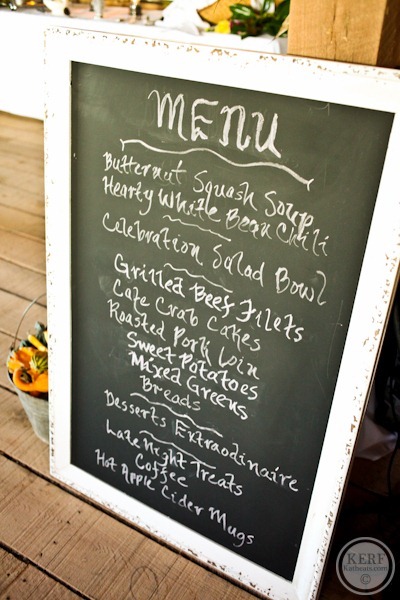 MENU
Butternut Squash Soup
Hearty White Bean Chili
Celebration Salad Bowl
Grilled Beef Filets
Cate Crab Cakes
Roasted Pork Loin
Sweet Potatoes
Mixed Greens
Breads
Desserts Extraodinaire
Late Night Treats
Coffee
Hot Apple Cider Mugs
KERF
Katheats.com
©